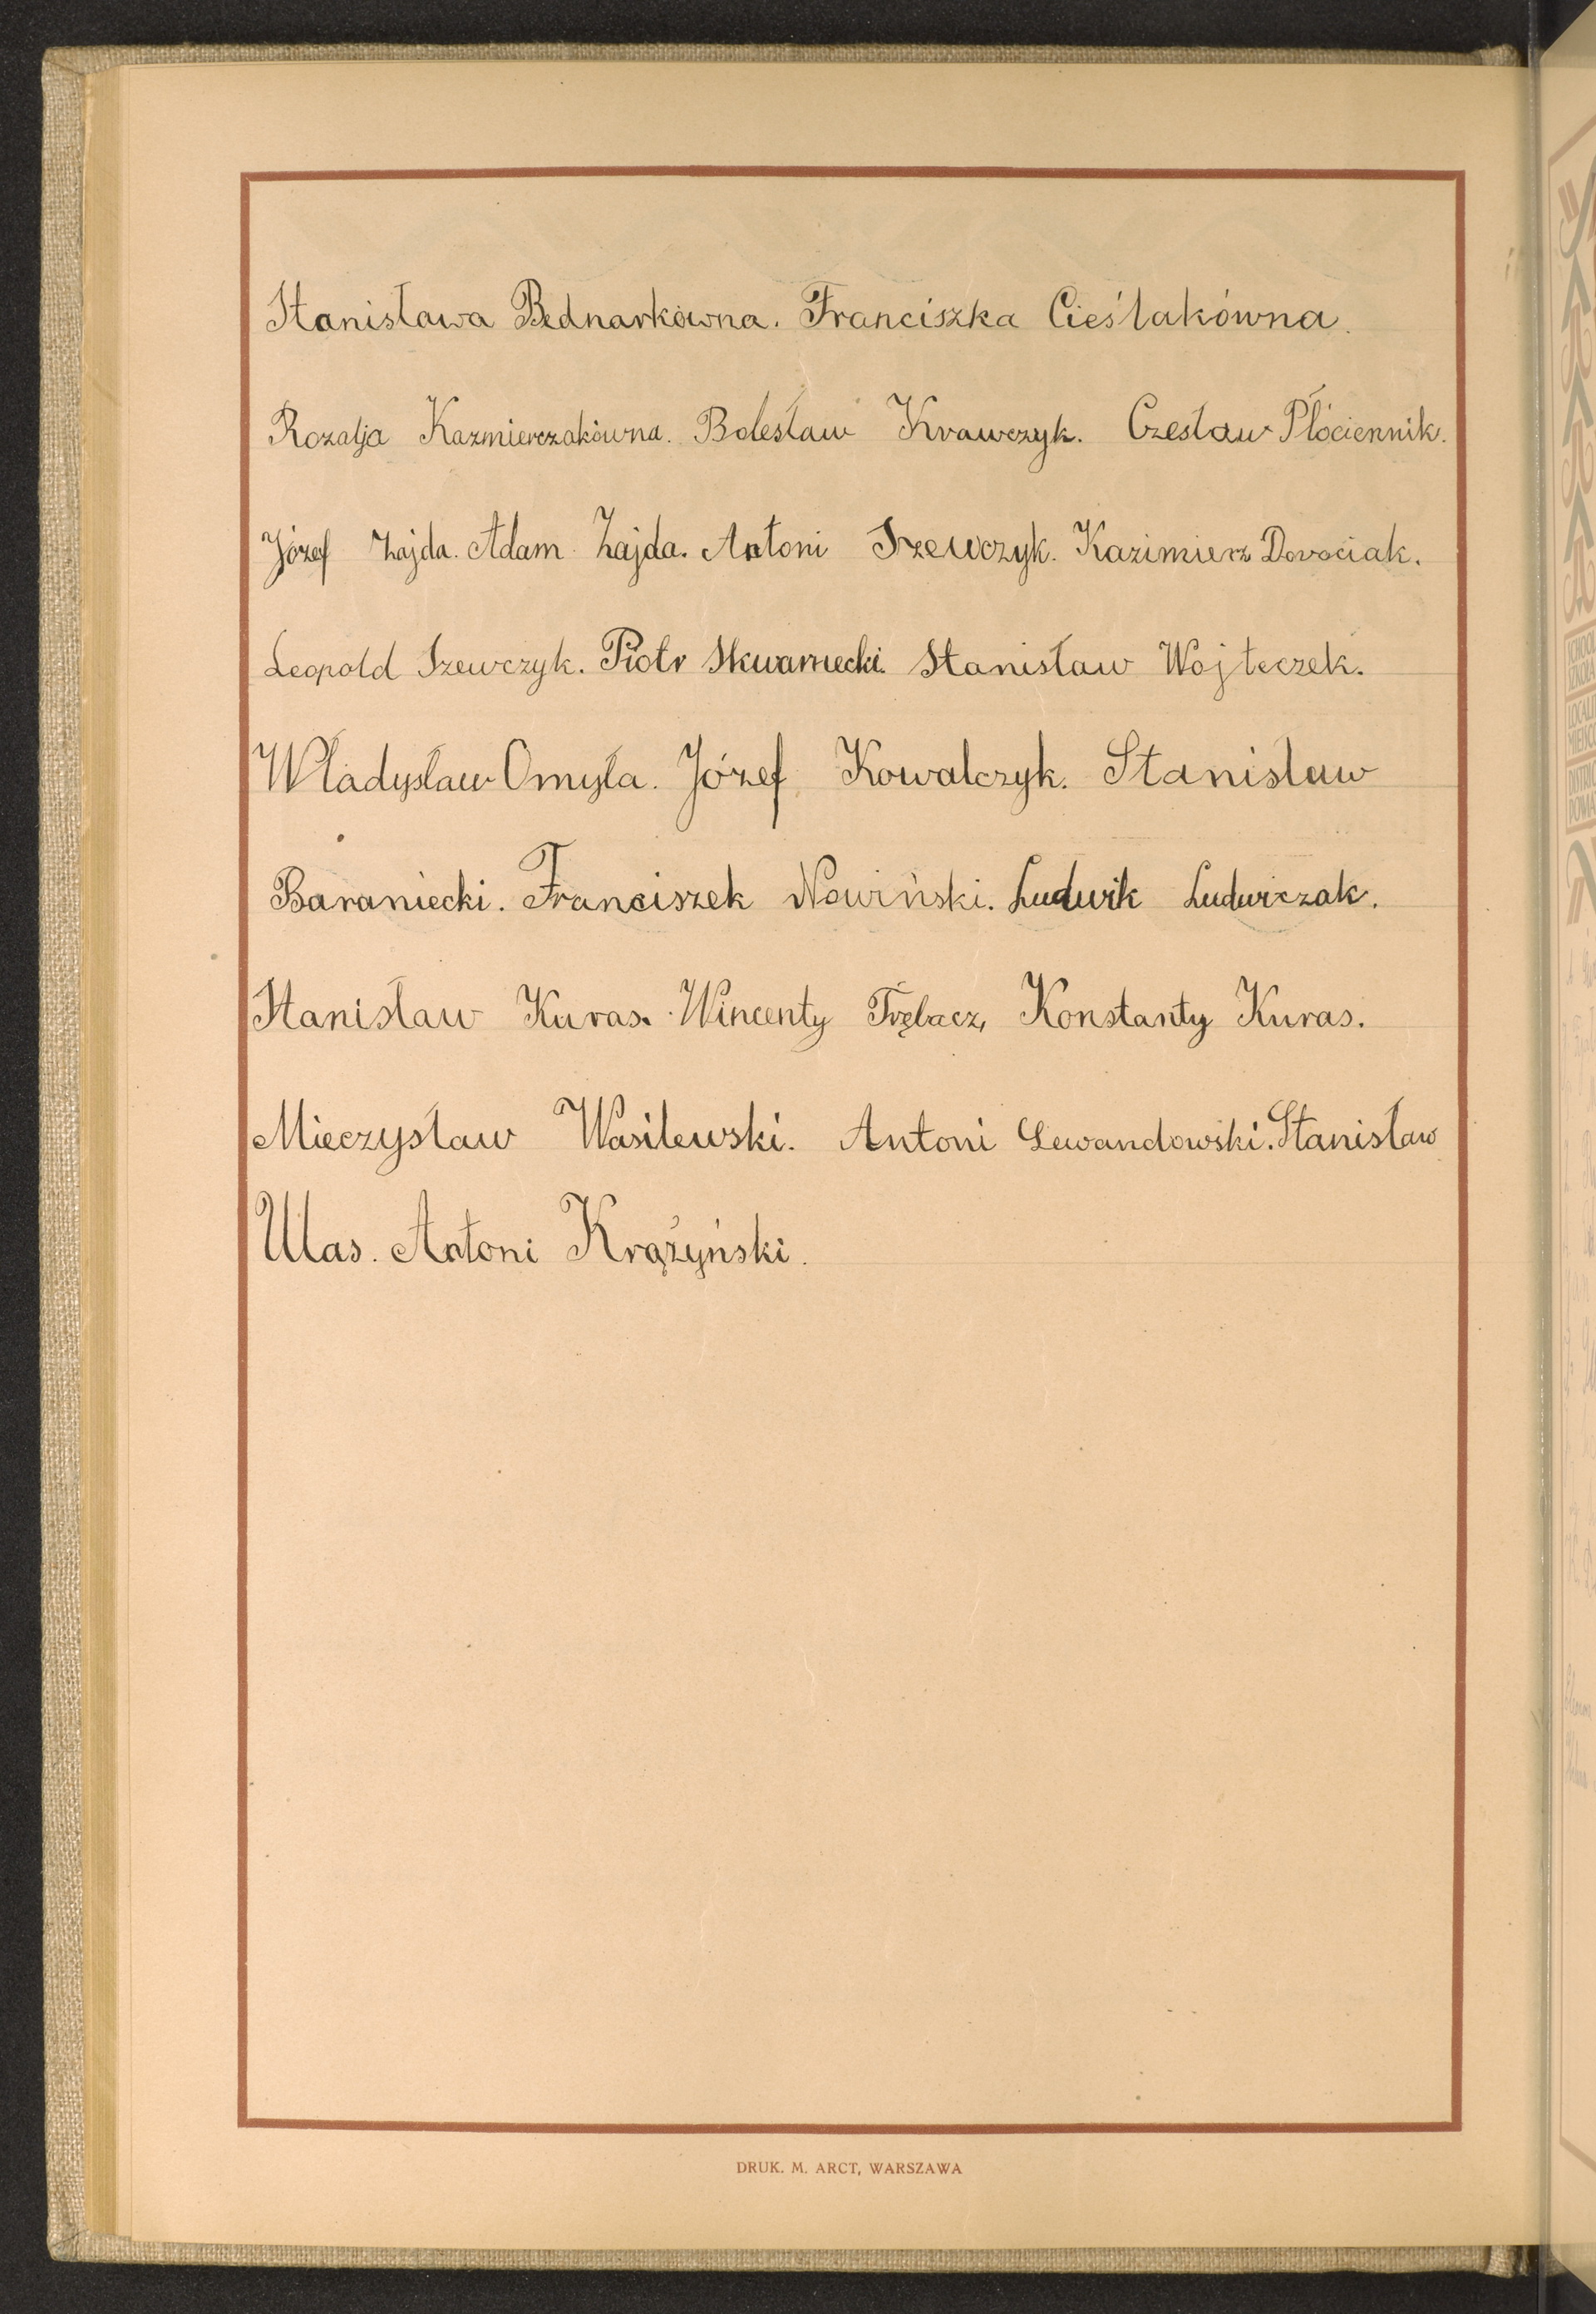 Stanisława Bednarkówna. Franciszka Cieślakówna.
Rozalja Kazmierczakówna. Bolesław Krawczyk. Czesław Płóciennik.
Józef Zajda. Adam Zajda. Antoni Szewczyk. Kazimierz Dorociak.
Leopold Szewczyk. Piotr Skwarnecki. Stanisław Wojteczek.
Władysław Omyła. Józef Kowalczyk. Stanisław
Baraniecki. Franciszek Nowiński. Ludwik Ludwiczak.
Stanisław Kuras. Wincenty Trębacz, Konstanty Kuras.
Mieczysław Wasilewski. Antoni Lewandowski. Stanisław
Ulas. Antoni Krążyński.
DRUK. M. ARCT, WARSZAWA